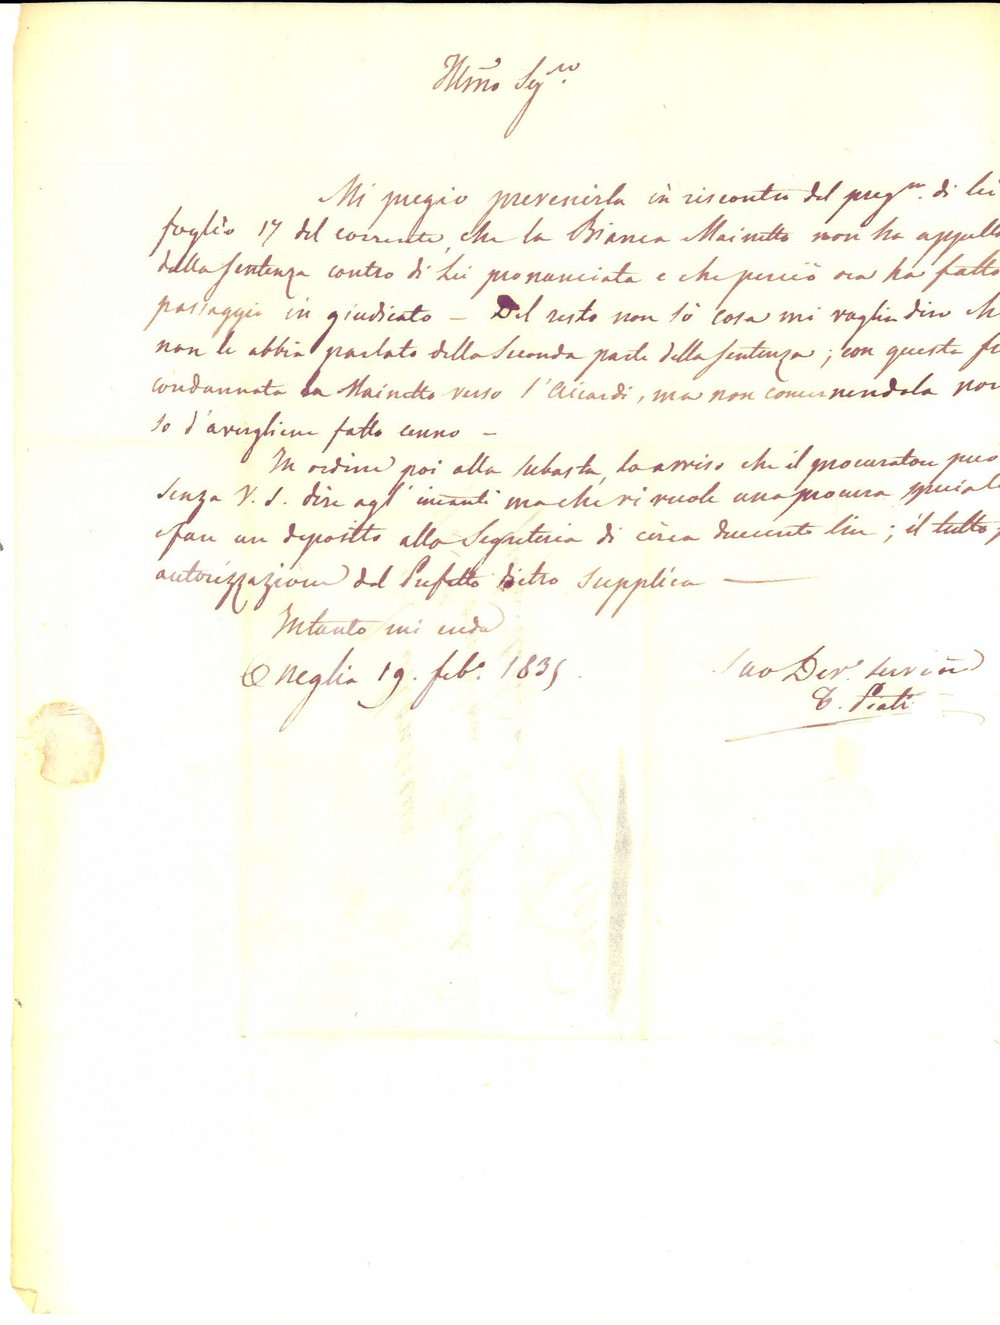 Illmo Sigre.
Mi pregio prevenirla in riscontro del pregmo. di lei
foglio 17 del corrente, che la Bianca Mainetto non ha appella
dalla sentenza contro di Lei pronunciata e che perciò ora ha fatto
passaggio in giudicato — Del resto non sò cosa mi voglia dire ch
non le abbia parlato della seconda parte della sentenza; con questa fu
condannata la Mainetto verso l'Aicardi, ma non concernendola non
so d'avergliene fatto cenno —
In ordine poi alla subasta, la avviso che il procuratore può
senza V. S. dire agl'incanti ma che vi vuole una procura speciale
e fare un deposito alla Segreteria di circa duecento lire; il tutto
autorizzazione del Prefetto dietro supplica —
Intanto mi creda
Oneglia 19. febo. 1835.
Suo Devo. servire